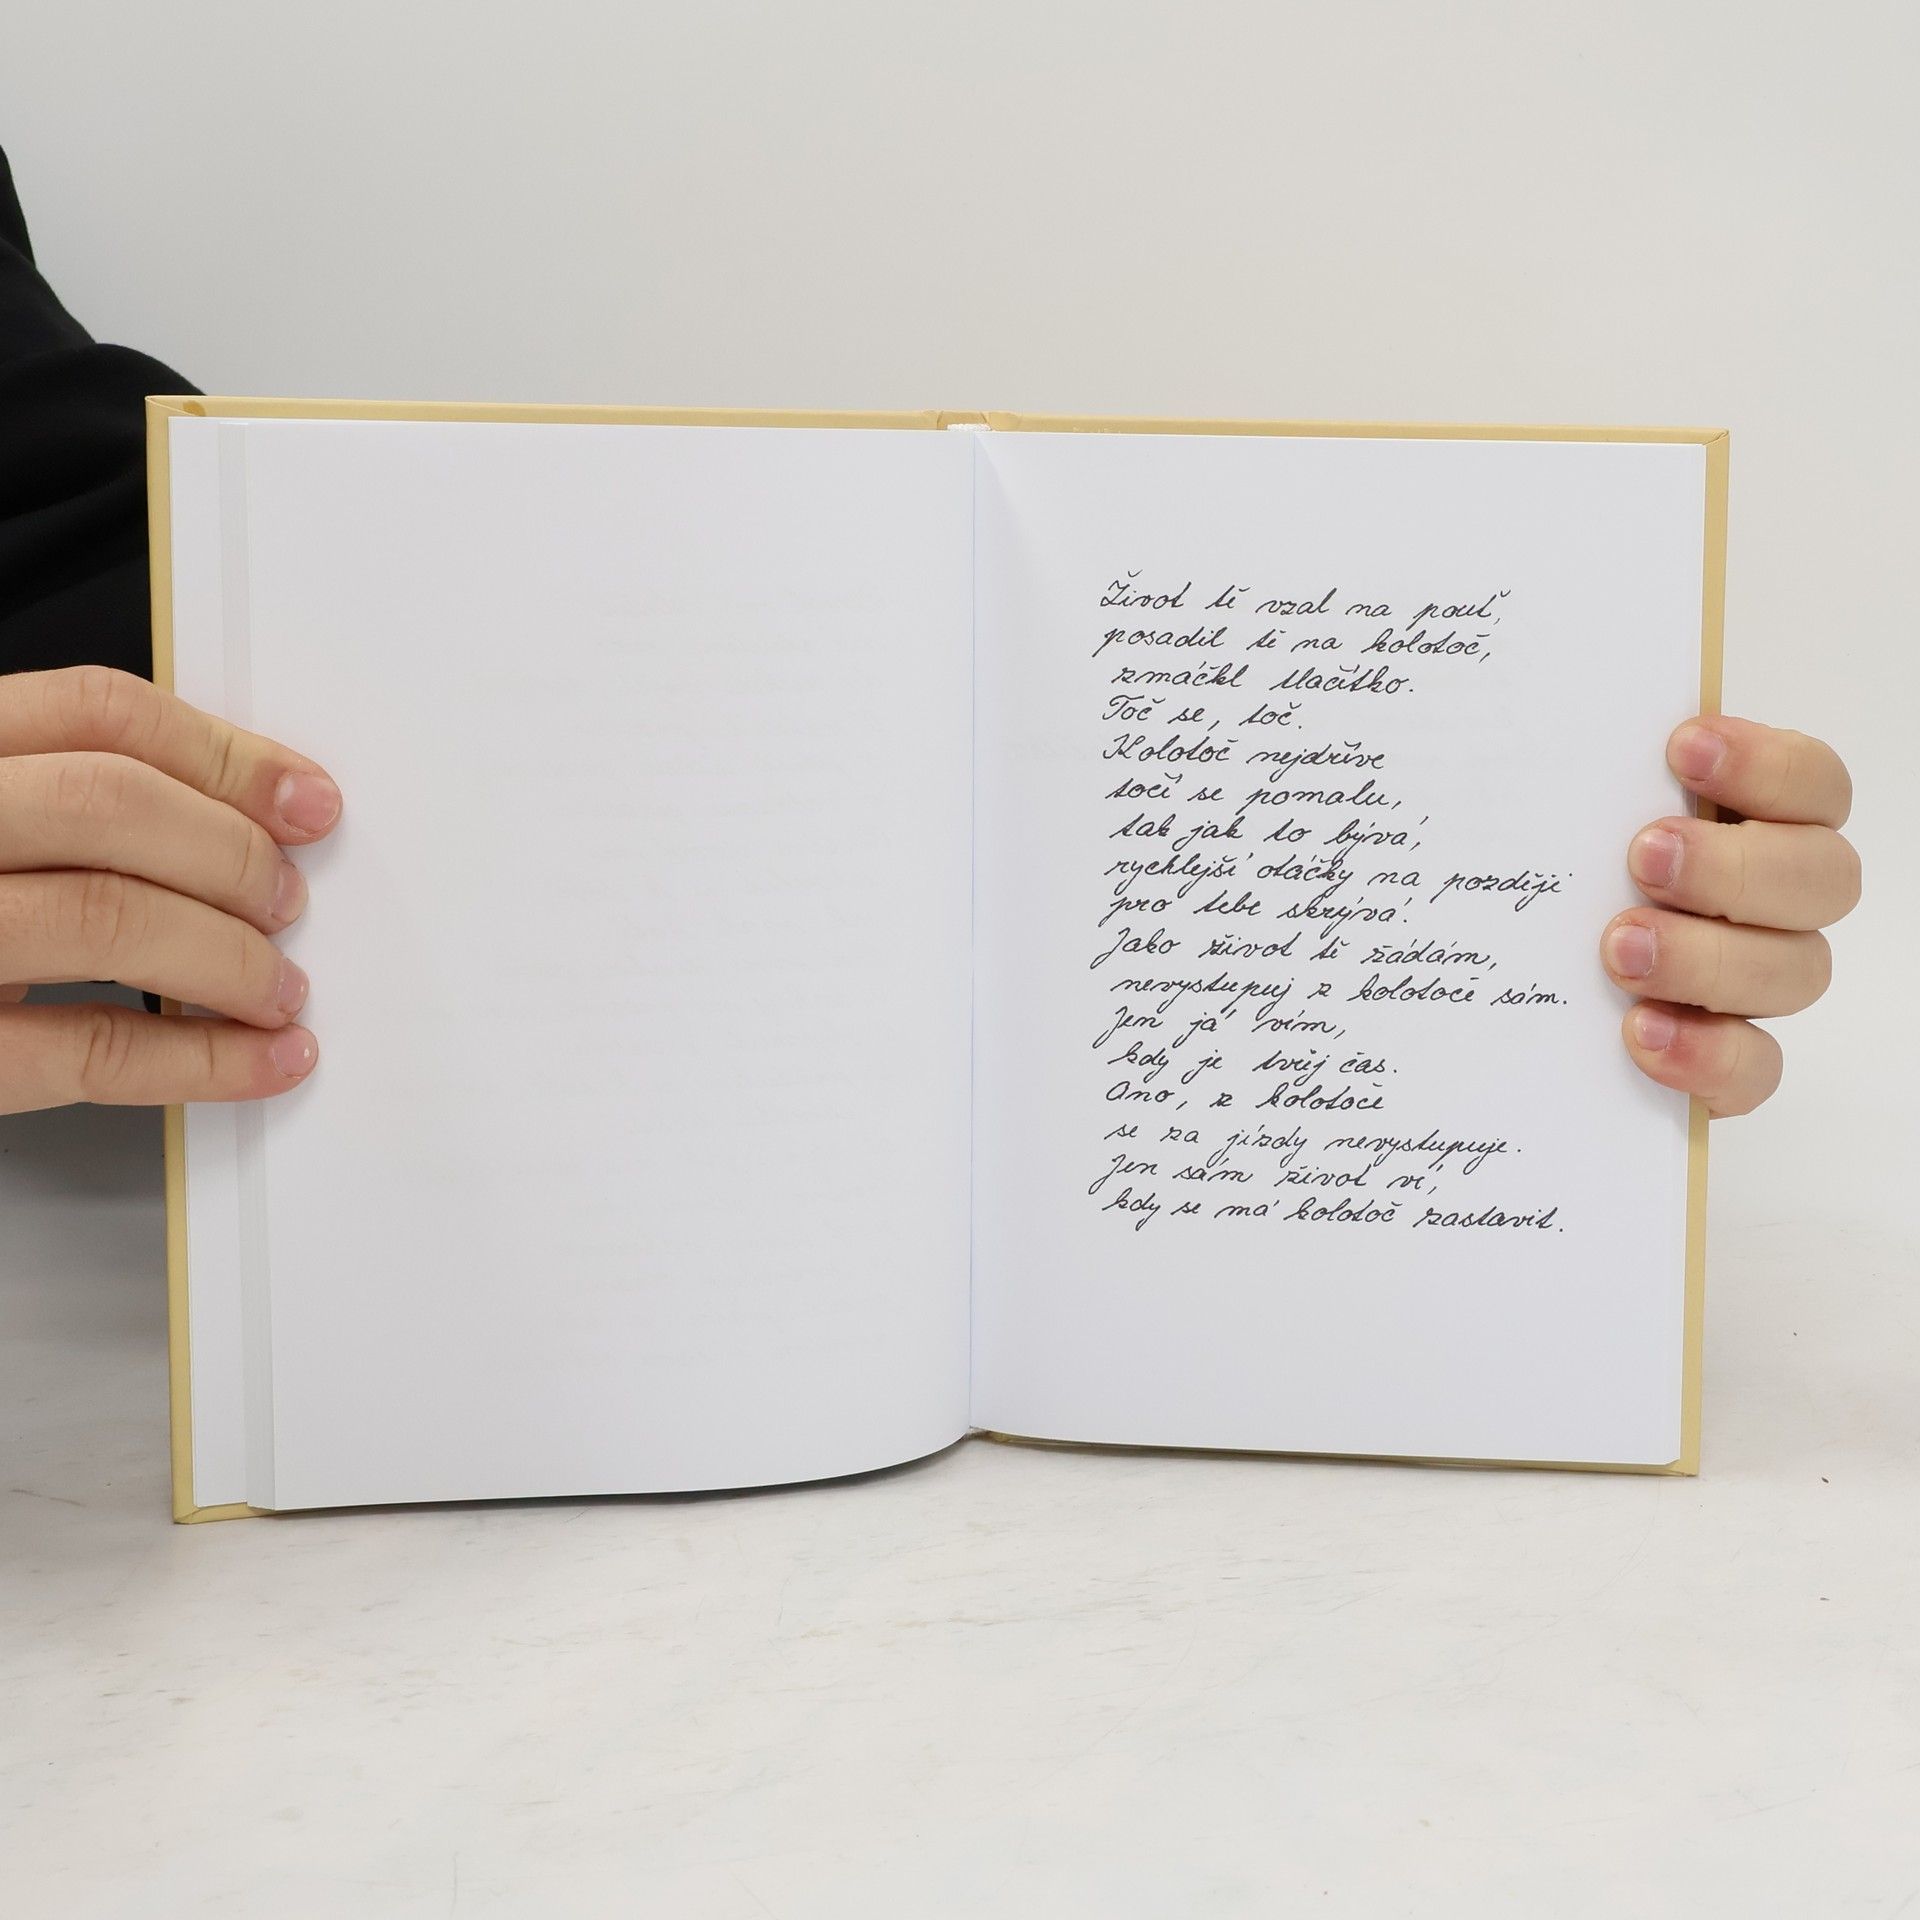 Život tě vzal na pouť,
posadil tě na kolotoč,
zmáčkl tlačítko.
Toč se, toč.
Kolotoč nejdříve
točí se pomalu,
tak jak to bývá,
rychlejší otáčky na později
pro tebe skrývá.
Jako život tě žádám,
nevystupuj z kolotoče sám.
Jen já vím,
kdy je tvůj čas.
Ano, z kolotoče
se za jízdy nevystupuje.
Jen sám život ví,
kdy se má kolotoč zastavit.